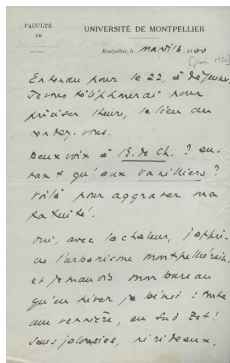 FACULTÉ
DE
UNIVERSITÉ DE MONTPELLIER
Montpellier, le mardi
[juin 1950]
Entendu pour le 22, à déjeuner.
Je vous téléphonerai pour
préciser l'heure, le lieu du
rendez-vous.
Deux voix à E. de Ch. ? au-
tant qu'aux Vanilliers ?
Voilà pour aggraver ma
fatuité.
Oui, avec la chaleur, j'appré-
cie l'urbanisme montpelliérain
et je maudis mon bureau
qu'en hiver je bénis : toute
une verrière, au Sud Est !
Sans jalousies, ni rideaux.